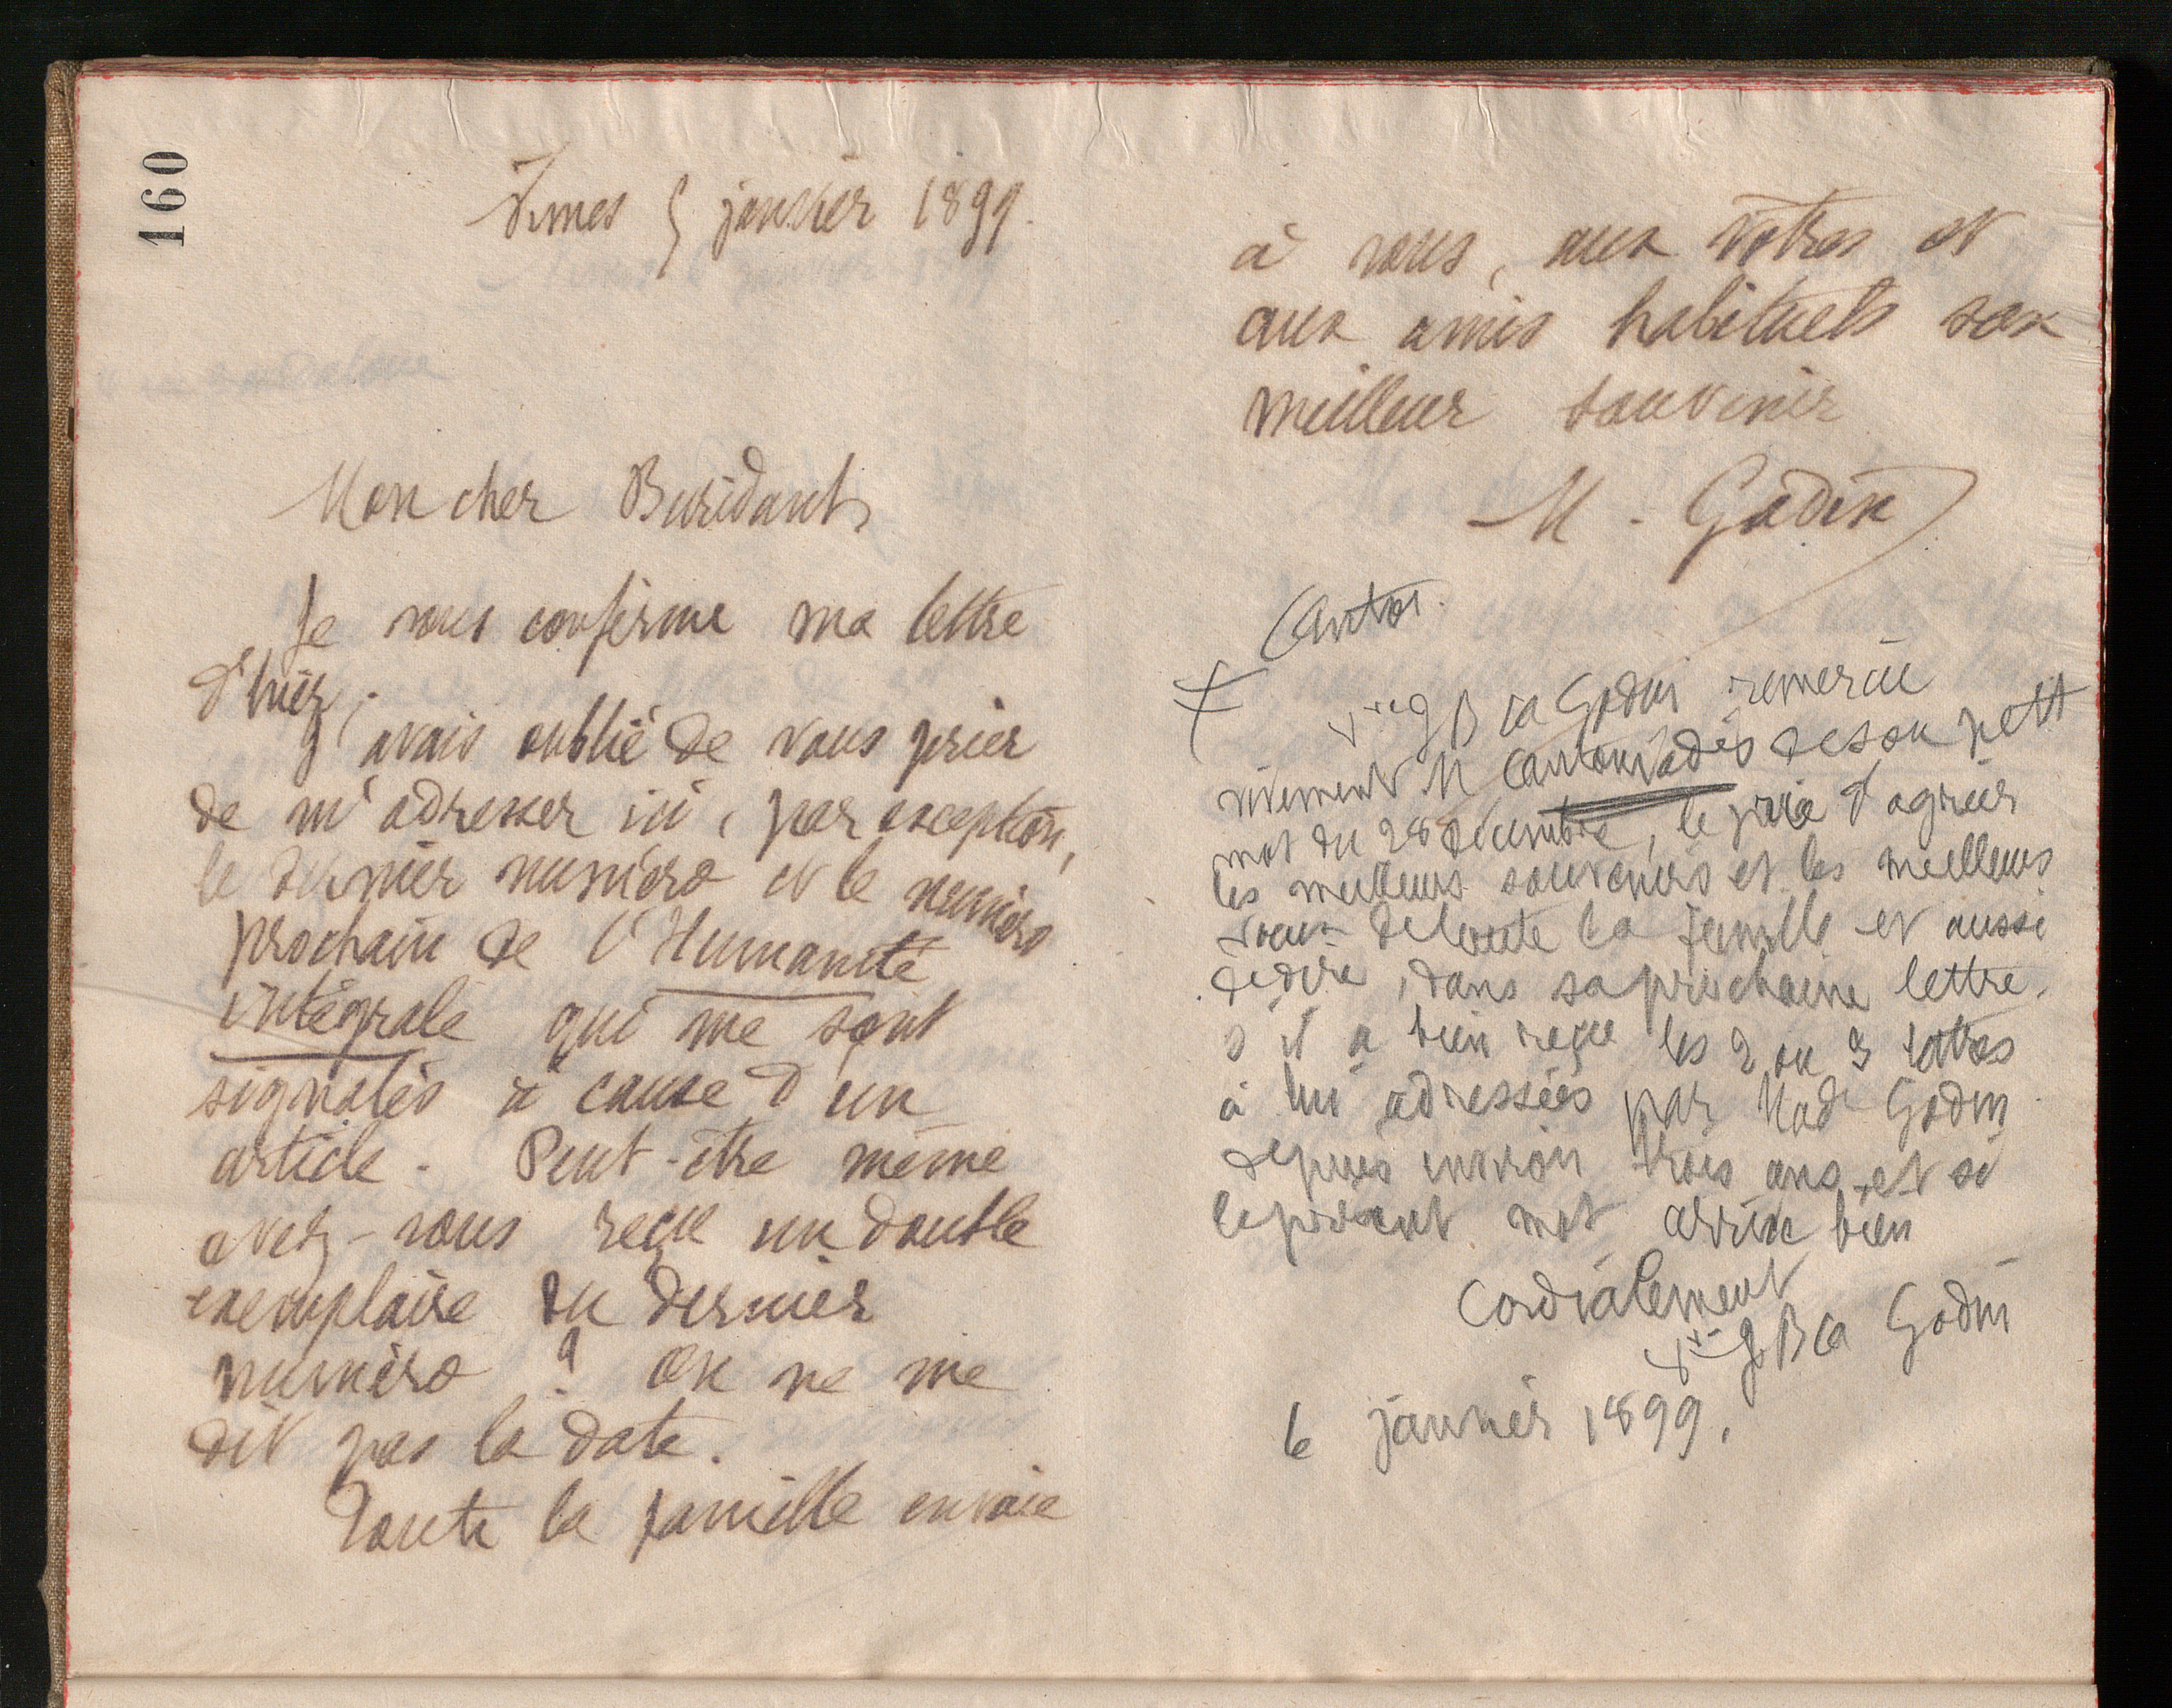 160
Nimes 5 janvier 1899.
Mon cher Buridant,
Je vous confirme ma lettre
d'hier.
J'avais oublié de vous prier
de m'adresser ici, par exception,
le dernier numéro et le numéro
prochain de l'Humanité
intégrale qui me sont
signalés à cause d'un
article. Peut-être même
avez-vous reçu un double
exemplaire du dernier
numéro ? On ne me
dit pas la date.
Toute la famille envoie
à vous, aux vôtres et
aux amis habituels son
meilleur souvenir
M. Godin
Canton.
Vve J B A Godin remercie
vivement M Cantoniadès de son petit
mot du 28 décembre, le prie d'agréer
les meilleurs souvenirs et les meilleurs
voeux de toute la famille et aussi
de dire, dans sa prochaine lettre,
s'il a bien reçu les 2 ou 3 lettres
à lui adressées par Made Godin
depuis environ trois ans, et si
le présent mot arrive bien
Cordialement
Vve J B A Godin
6 janvier 1899.